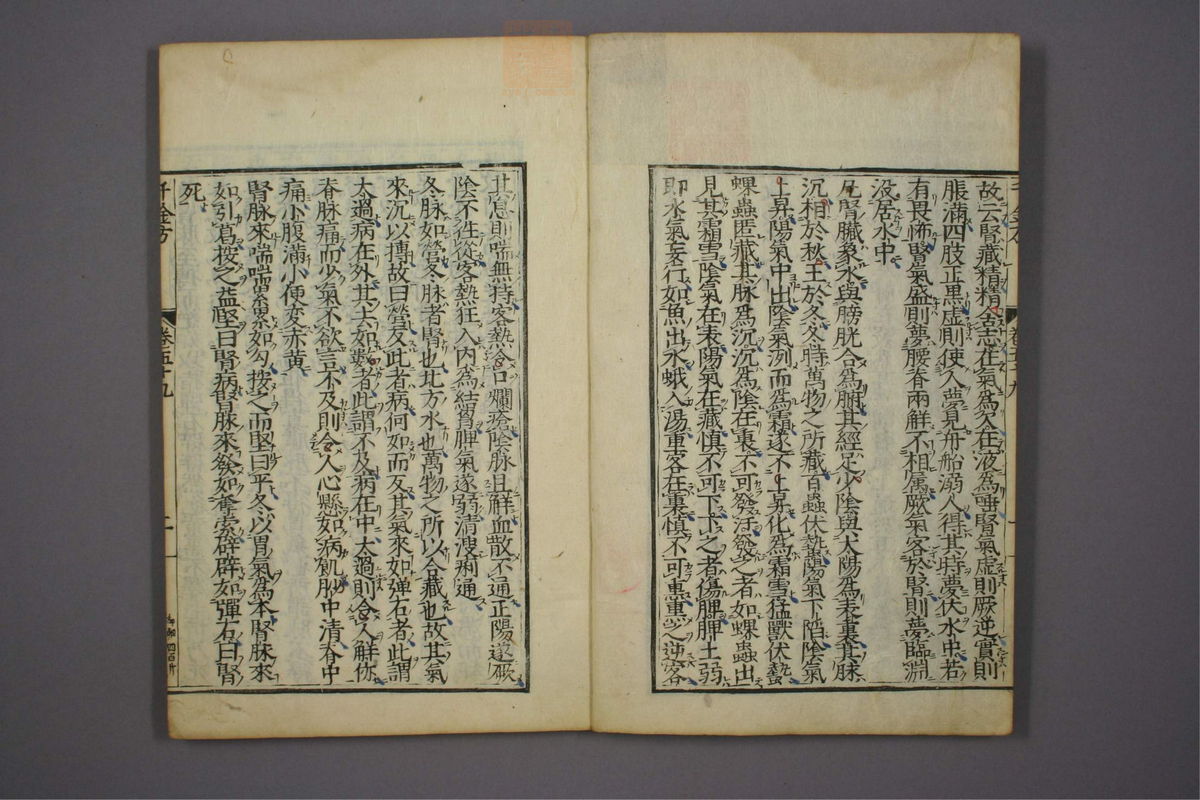 故云腎藏精精舍志在氣為欠在液為唾腎氣虛則厥逆實則
脹滿四肢正黒虛則使人夢見舟舩溺人得其時夢伏水中若
有畏怖腎氣盛則夢腰脊兩觧不相属厥氣客於腎則夢臨淵
没居水中
凡腎臓象水與膀胱合為腑其經足少陰與太陽為表裏其脉
沉相於秋王於冬冬時萬物之所藏百蟲伏蟄陽氣下陷陰氣
上昇陽氣中出陰氣冽而為霜遂不上昇化為霜雪猛獸伏蟄
蜾蟲匿藏其脉為沉沉為陰在裏不可發汗發之者如蜾蟲出
見其霜雪陰氣在表陽氣在藏慎不可下下之者傷脾脾土弱
即水氣妄行如魚出水蛾入湯重客在裏慎不可熏熏之逆客
其息則喘無持客熱令口爛瘡陰脉且觧血散不通正陽遂厥
陰不往從客熱狂入内為結胷脾氣遂弱清溲痢通
冬脉如營冬脉者腎也北方水也萬物之所以合藏也故其氣
來沉以搏故曰營反此者病何如而反其氣來如弹石者此謂
太過病在外其去如數者此謂不及病在中太過則令人觧㑊
脊脉痛而少氣不欲言不及則令人心懸如病飢䏚中清脊中
痛小腹滿小便変赤黄
腎脉來喘喘累累如勾按之而堅曰平冬以胃氣為本腎脉來
如引葛按之益堅曰腎病腎脉來發如奪索辟辟如彈石曰腎
死
千金方
卷五十九